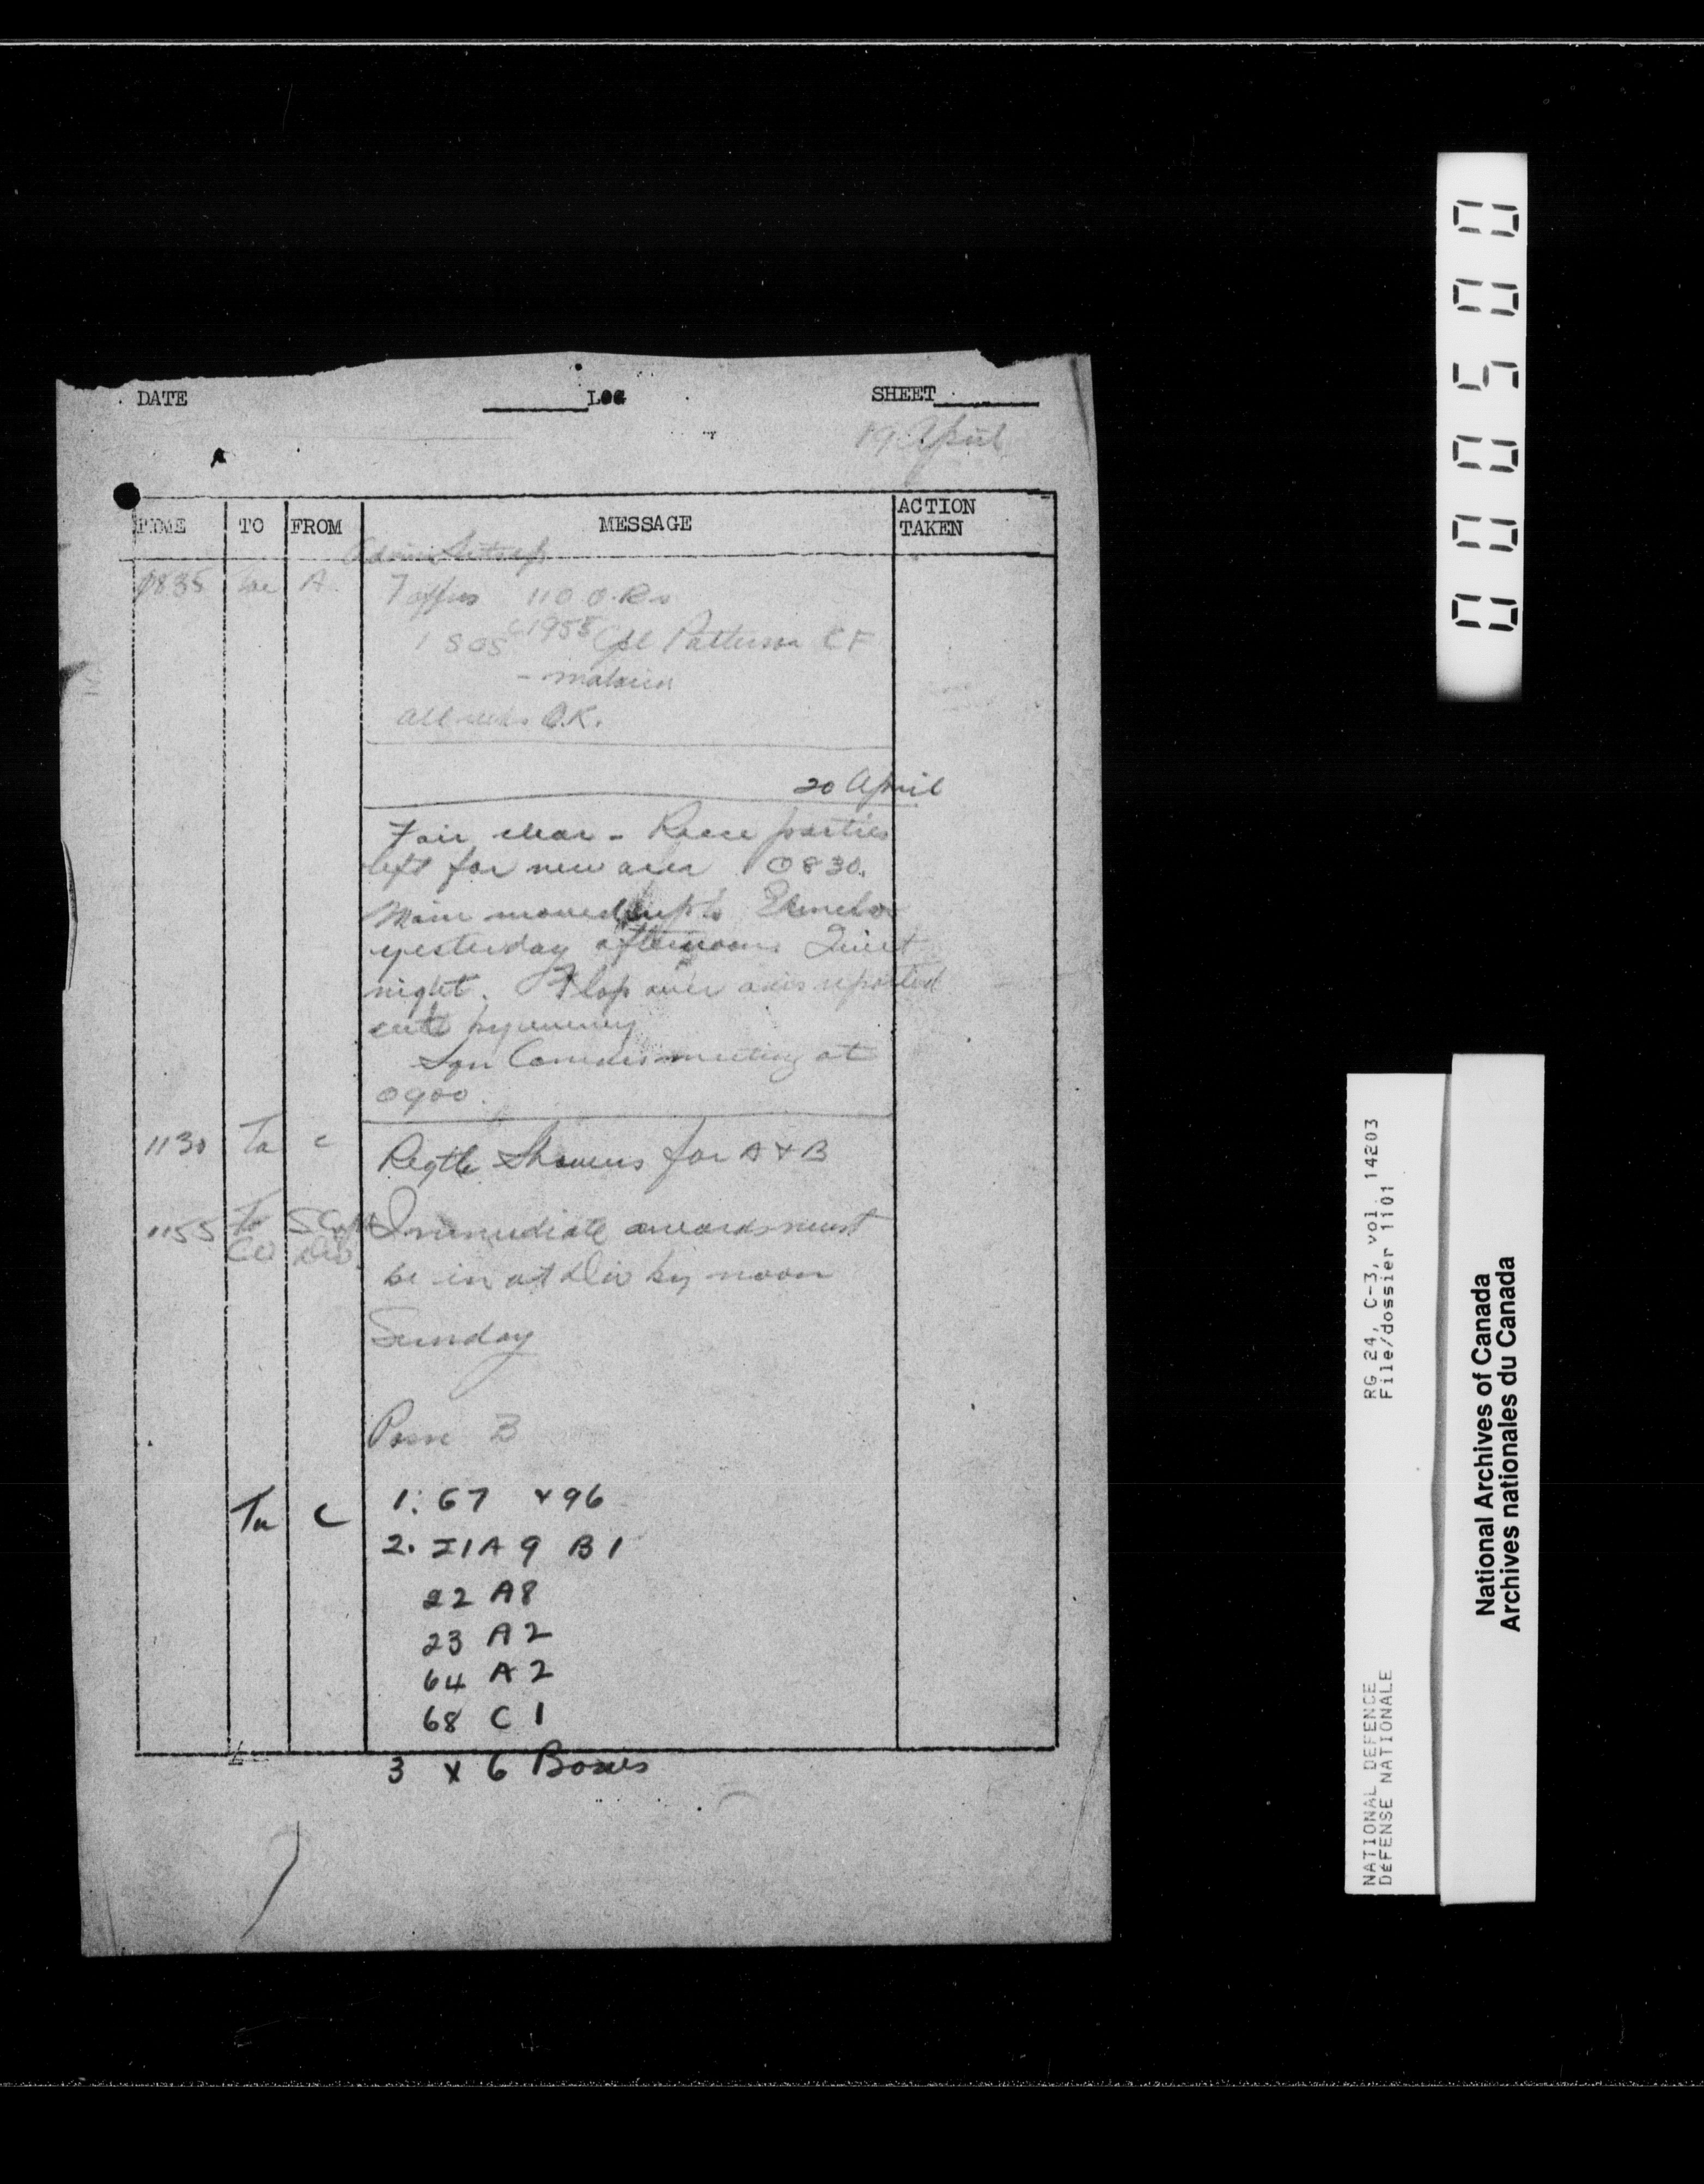 DATE LOG SHEET
19 April
TIME TO FROM MESSAGE ACTION TAKEN
0835 A 7 offrs 110 O.Rs
1 SOS C1955 Cpl Patterson CF
- malaria
all O.K.
20 April
Fair clear - Recce parties
left for new area 0830.
Main moved up to
yesterday afternoon. Quiet
night. Flap over axis reported
cut by enemy
Sqn Comdrs meeting at
0900.
1130 Ta C Regtl Showers for A + B
1155 To CO S Capt Div. Immediate awards must
be in at Div by noon
Sunday
B
Ta C 1. G7 + 96
2. I1A9 B1
22 A8
23 A2
64 A2
68 C1
3 x 6 Boxes
000500
RG 24, C-3, vol. 14203
File/dossier 1101
NATIONAL DEFENCE
DÉFENSE NATIONALE
National Archives of Canada
Archives nationales du Canada